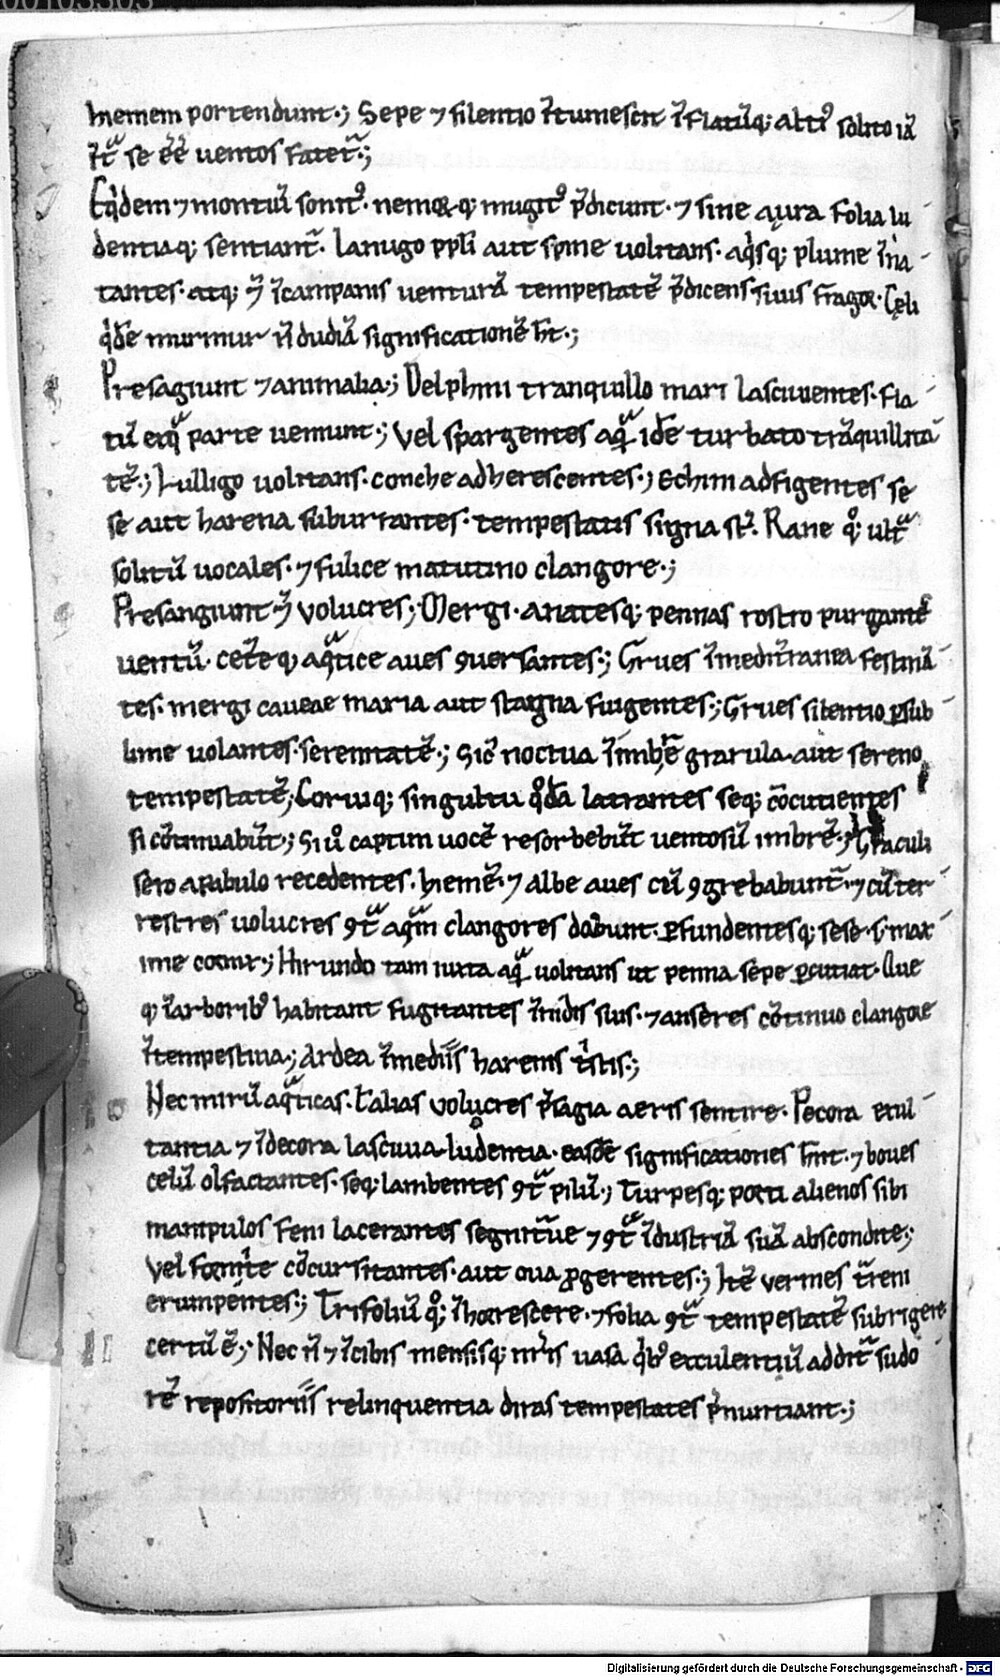 hiemem portendunt·; Sepe ⁊ silentio ĩtumescit ĩflatũq; alti᷒ solito iã
ĩtᷓ se ẽẽ uentos fatet᷑·;
Eq̇dem ⁊ montiũ sonit᷒· nemoꝝq; mugit᷒ p̃dicunt· ⁊ sine aura folia lu
dentiaq; sentiant᷑. lanugo ppli aut spine uolitans· aq̇sq; plume ĩna
tantes· atq; ⁊̃ ĩcampanis uenturã tempestatẽ p̃dicens suus fragor· Cęli
q̇dẽ murmur ñ dudiã significationẽ ht̃·;
Presagiunt ⁊ animalia·; Delphini tranquillo mari lasciuientes· fla
tũ ex qᷓ parte ueniunt·; Vel spargentes aqᷓ idẽ turbato trãquillita
tẽ·; Lulligo uolitans· conche adherescentes·; Echini adfigentes se
se aut harena saburrantes· tempestatis signa st̃. Rane qͦ; ultᷓ
solitũ uocales· ⁊ fulice matutino clangore·;
Presangiunt ⁊̃ volucres; Mergi· anatesq; pennas rostro purgantes
uentũ· cetẽq aqᷓtice aues ꝯuersantes·; Grues ĩmedit̃ranea festinã
tes· mergi caueae maria aut stagna fugentes·; Grues silentio ꝑsub
lime uolantes· serenitatẽ·; Sic᷒ noctua ĩimbre garrula· aut sereno
tempestatẽ; Coruiq; singultu qͦdã latrantes seq; cõcutientes
si cõtinuabũt·; Si uͦ captim uocẽ resorbebũt uentosũ imbrẽ·; Graculi
sero a pabulo recedentes· hiemẽ· ⁊ albe aues cũ ꝯgregabunt᷑· ⁊ cũ ter
restres uolucres ꝯtᷓ aqᷓm clangores dabunt· ꝑfundentesq; sese· s; max
ime cornix·; Hirundo tam iuxta aqᷓ uolitans ut penna sepe ꝑcutiat· Que
q ĩarborib᷒ habitant fugitantes ĩnidis suis· ⁊ anseres cõtinuo clangore
ĩtempestiua·; Ardea ĩmediis harenis tⁱstis·;
Nec mirũ aqᷓticas· talias volucres p̃sagia aeris sentire· Pecora exul
tantia ⁊ ĩdecora lasciuia· ludentia· easdẽ significationes hñt· ⁊ boues
celũ olfactantes· seq; lambentes ꝯtᷓ pilũ·; Turpesq; porci alienos sibi
manipulos feni lacerantes segnit᷑ue ⁊ ꝯtᷓ ĩdustriã suã abscondite;
Vel formice cõcursitantes· aut oua ꝓgerentes·; Itẽ vermes t᷑reni
erumpentes·; Trifoliũ qͦ; ĩhorrescere· ⁊ folia ꝯtᷓ tempestatẽ subrigere
certũ ẽ·; Nec ñ ⁊ ĩcibis mensisq; nr̃is uasa qⁱb᷒ exculentiũ addit᷑ sudo
rẽ repositoriis relinquentia diras tempestates p̃nuntiant·;
Digitalisierung gefördert durch die Deutsche Forschungsgemeinschaft - DFG